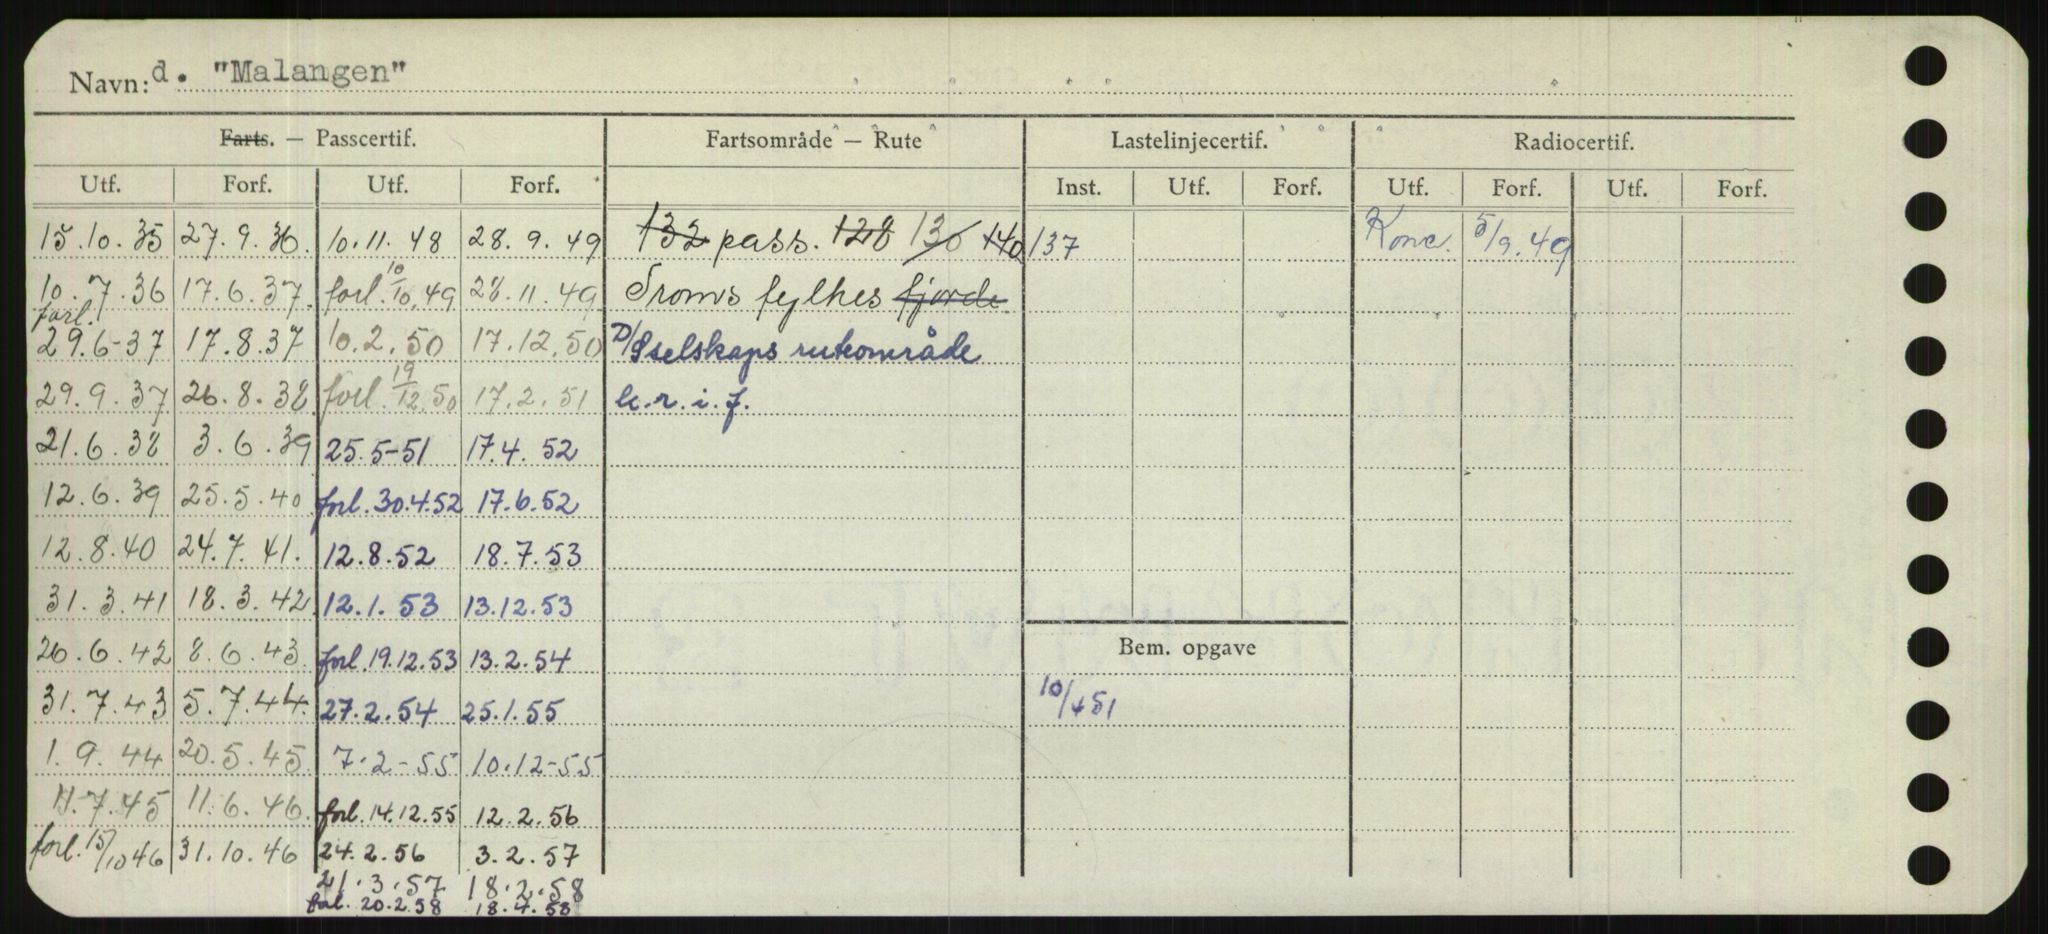 Navn: d. "Malangen"
Farts. — Passcertif. Fartsområde — Rute Lastelinjecertif. Radiocertif.
Utf. Forf. Utf. Forf. Inst. Utf. Forf. Utf. Forf. Utf. Forf.
15.10.35 27.9.36. 10.11.48 28.9.49 132 pass. 128 130 140 137 Konc. 5/9.49
10.7.36 17.6.37. forl. 10/10.49 28.11.49 Troms fylkes fjorde
forl. 29.6-37 17.8.37 10.2.50 17.12.50 D/Sselskaps ruteområde
29.9.37 26.8.38 forl. 19/12.50 17.2.51 k.r.i.f.
21.6.38 3.6.39 25.5-51 17.4.52
12.6.39 25.5.40 forl. 30.4.52 17.6.52
12.8.40 24.7.41. 12.8.52 18.7.53
31.3.41 18.3.42. 12.1.53 13.12.53
26.6.42 8.6.43. forl. 19.12.53 13.2.54 Bem. opgave
31.7.43 5.7.44. 27.2.54 25.1.55 10/4 51
1.9.44 20.5.45. 7.2-55 10.12-55
11.7.45 11.6.46. forl. 14.12.55 12.2.56
forl. 15/10 46 31.10.46 24.2.56 3.2.57
21.3.57 18.2.58
forl. 20.2.58 18.4.58